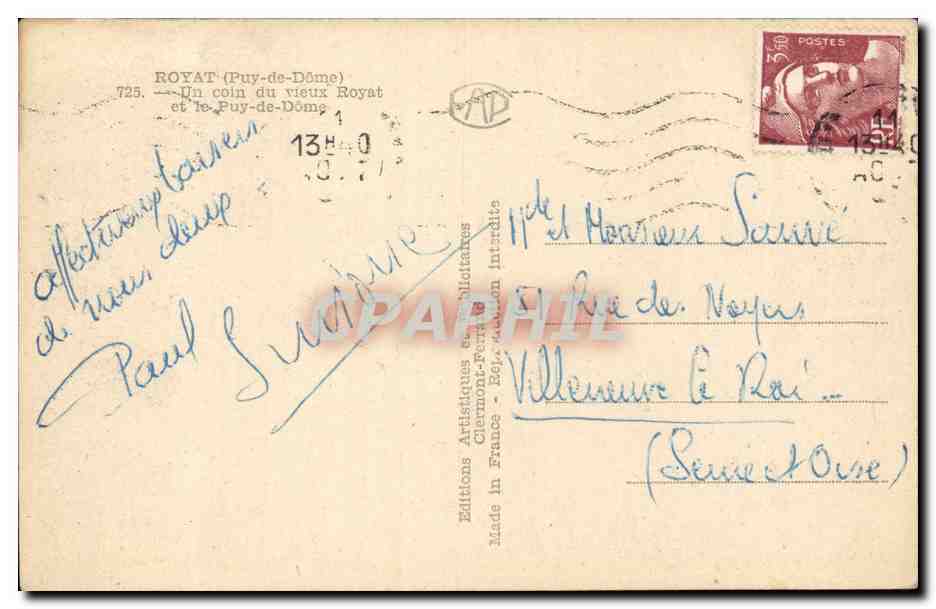 ROYAT (Puy-de-Dôme)
725. — Un coin du vieux Royat
et le Puy-de-Dôme
AP
3f50
POSTES
RF
1
13H40
11
13H40
affectueux baisers
de nous deux
Paul Suzanne
Editions Artistiques et Publicitaires
Clermont-Ferrand
Made in France - Reproduction interdite
CPAPHIL
Mde et Monsieur Sauvé
51 Rue des Noyers
Villeneuve Le Roi
(Seine et Oise)